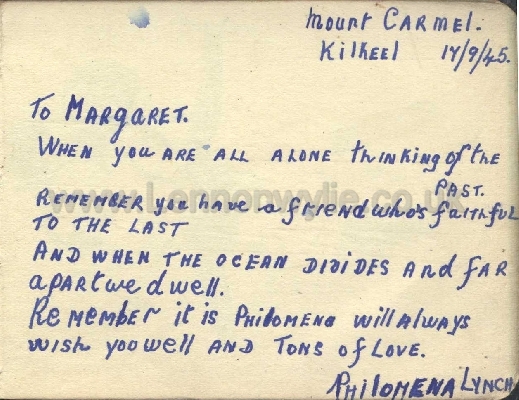 Mount CARMEL.
Kilkeel 17/9/45.
To MARgARET.
WHEN you ARE ALL ALONE thinking of the
PAST.
REMEMBER you have a friend who's faithful
TO THE LAST
AND WHEN THE OCEAN DIVIDES AND FAR
apart we dwell.
Remember it is Philomena will always
wish you well AND Tons of Love.
PHILOMENA LYNCH
www.Lennonwylie.co.uk